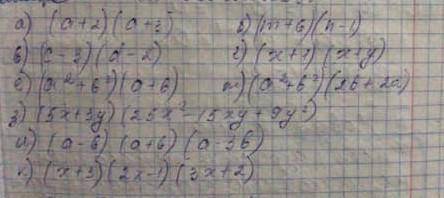 а) (a+2)(a+3) б) (m+6)(n-1)
в) (c-3)(d-2) г) (x+1)(x+y)
е) (a²+b²)(a+b) ж) (a²+b²)(2b+2a)
з) (5x+3y)(25x²-15xy+9y²)
и) (a-b)(a+b)(a-3b)
к) (x+3)(2x-1)(3x+2)